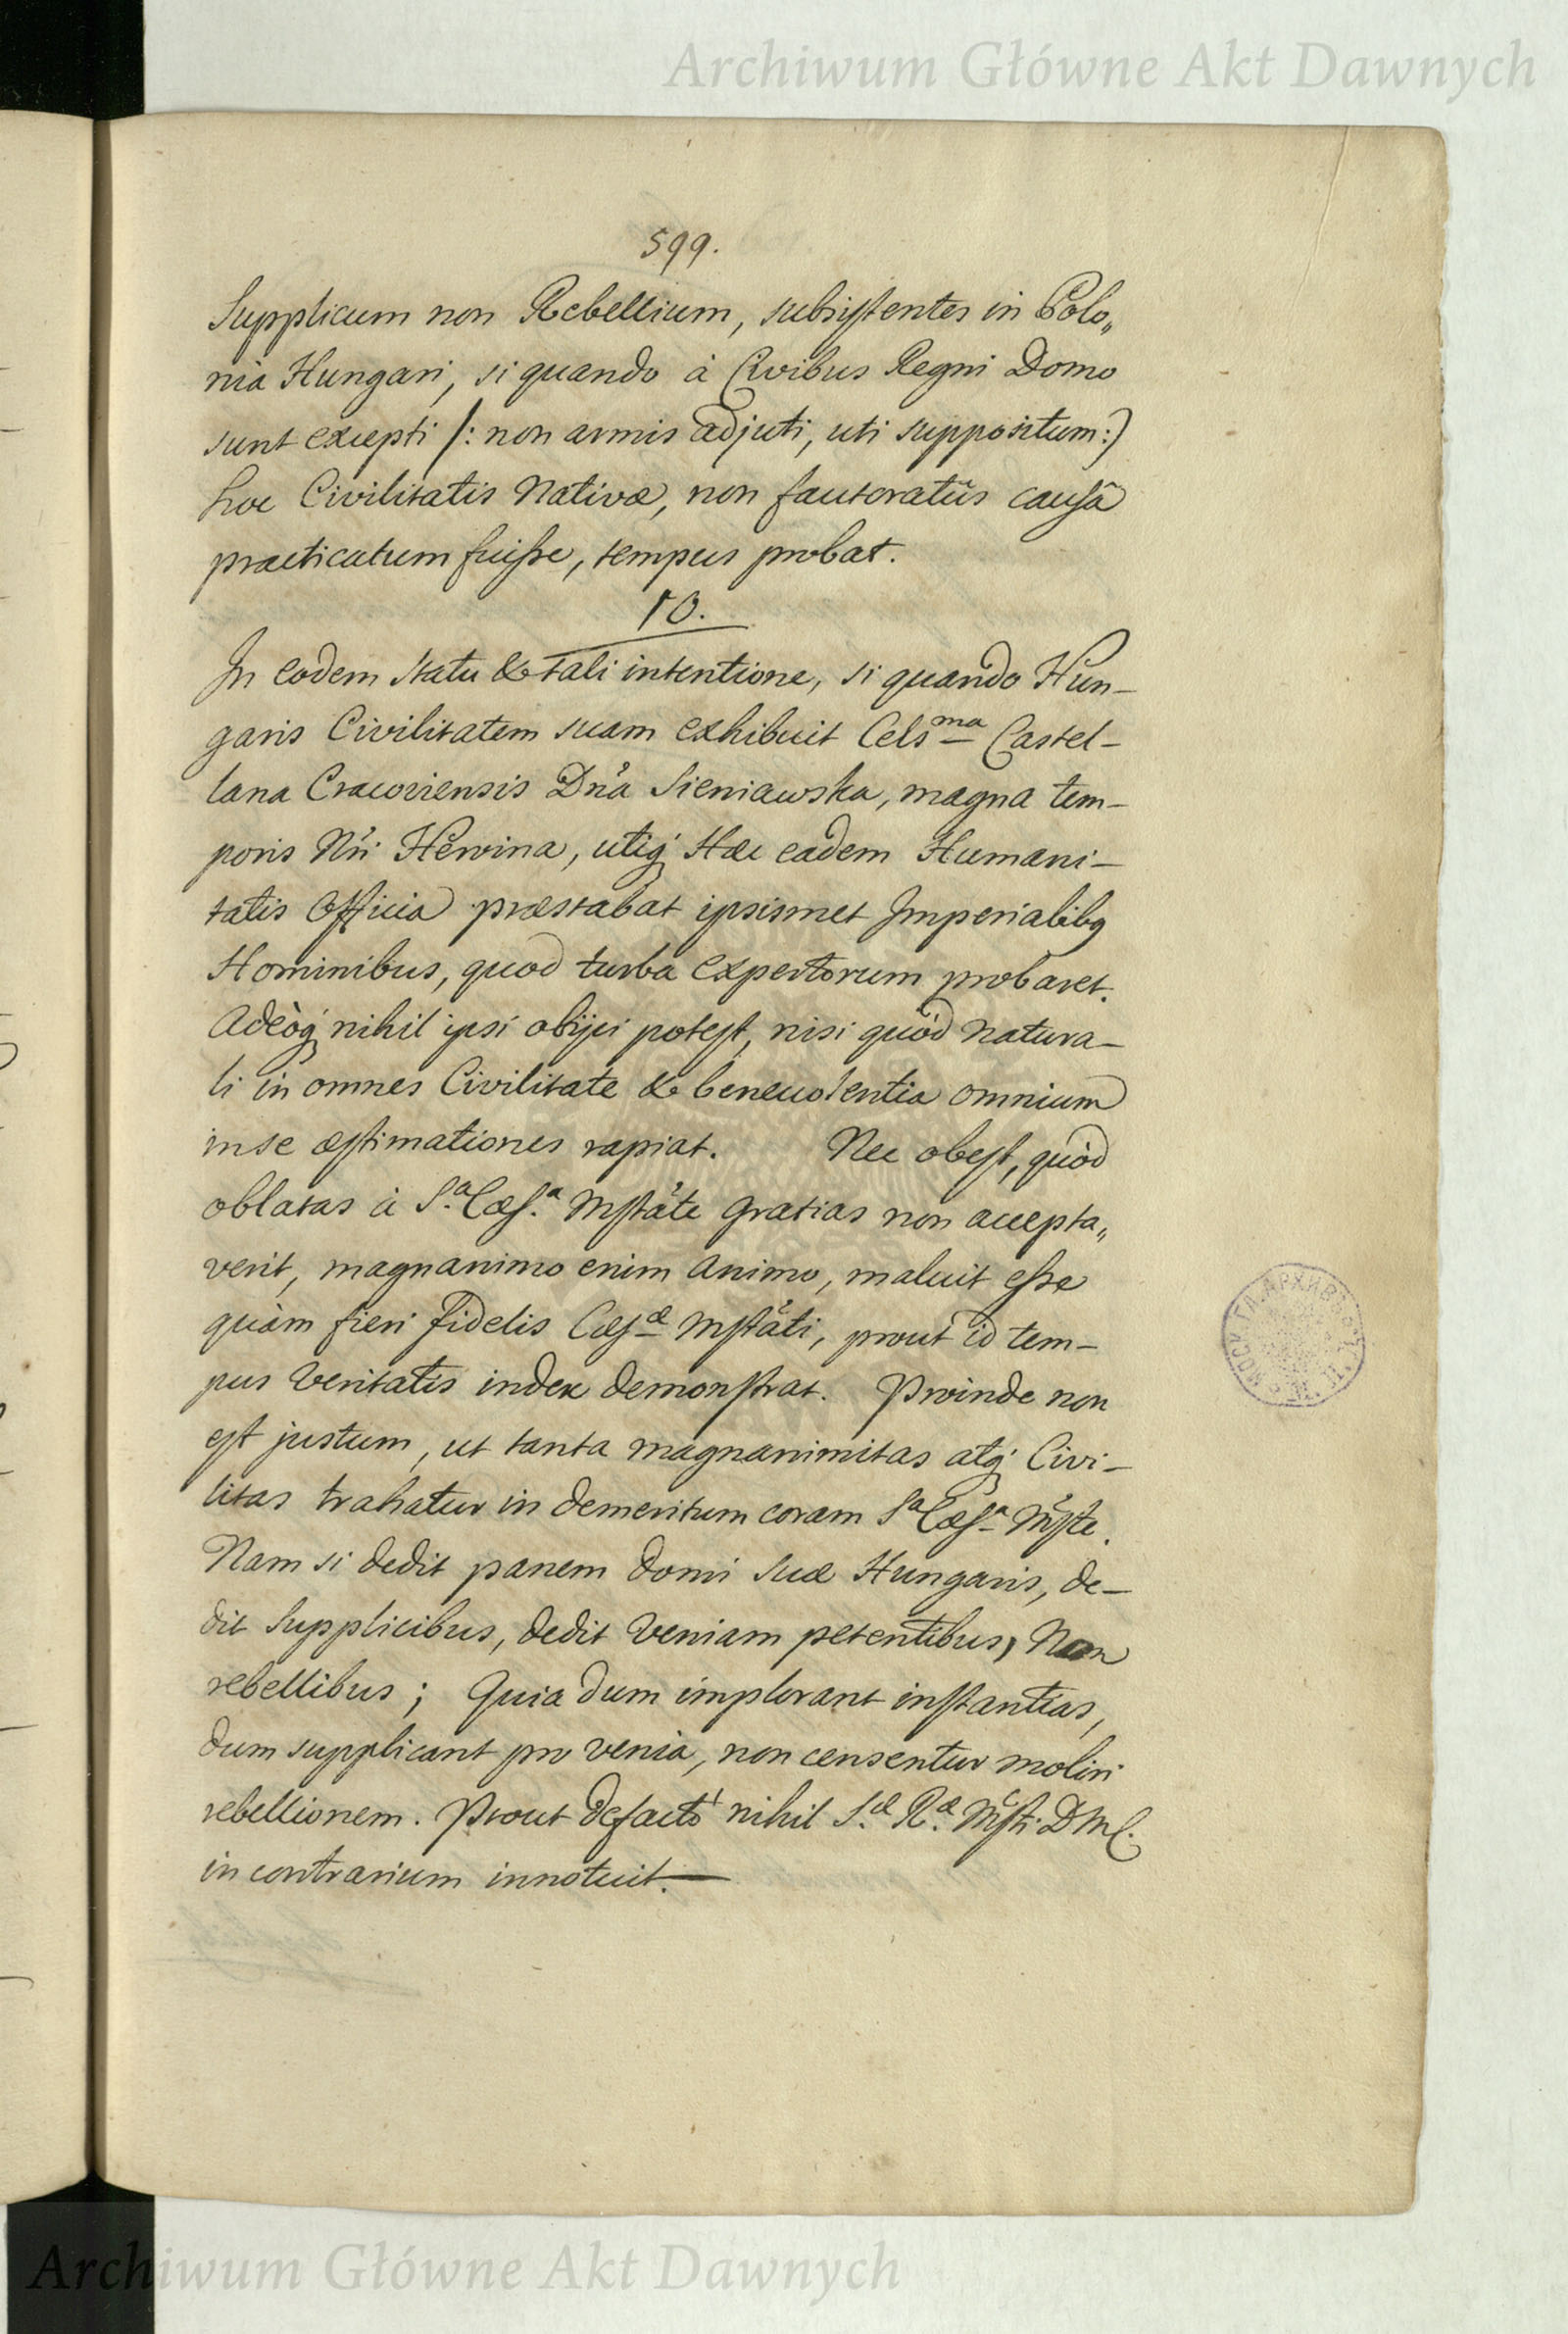 Archiwum Główne Akt Dawnych
599.
Supplicum non Rebellium, subsistentes in Polo„
nia Hungari, si quando à Civibus Regni Domo
sunt excepti /: non armis adjuti, uti suppositum:)
hoc Civilitatis Nativæ, non fautoratûs causâ
practicatum fuisse, tempus probat.
10.
In eodem statu & tali intentione, si quando Hun-
garis Civilitatem suam exhibuit Cels^ma Castel-
lana Cracoviensis Dn̄a Sieniawska, magna tem-
poris Nr̄i Heroina, utiq; Hæc eadem Humani-
tatis Officia præstabat ipsismet Imperialibq
Hominibus, quod turba expertorum probaret.
Adeòq; nihil ipsi obijci potest, nisi quòd natura-
li in omnes Civilitate & benevolentia omnium
in se æstimationes rapiat. Nec obest, quòd
oblatas à S.^a Cæs.^a Mstāte gratias non accepta„
verit, magnanimo enim animo, maluit esse
quàm fieri fidelis Cæs^æ Mstāti, prout id tem-
pus veritatis index demonstrat. Proinde non
est justum, ut tanta magnanimitas atq; Civi-
litas trahatur in demeritum coram S^a Cæs^a Ms̄te.
Nam si dedit panem domi suæ Hungaris, de-
dit Supplicibus, dedit Veniam petentibus, Non
rebellibus; Quia dum implorant instantias,
dum supplicant pro venia, non censentur moliri
rebellionem. Prout defacto nihil S.^æ R.^æ Ms̄ti D M C.
in contrarium innotuit.—
Archiwum Główne Akt Dawnych